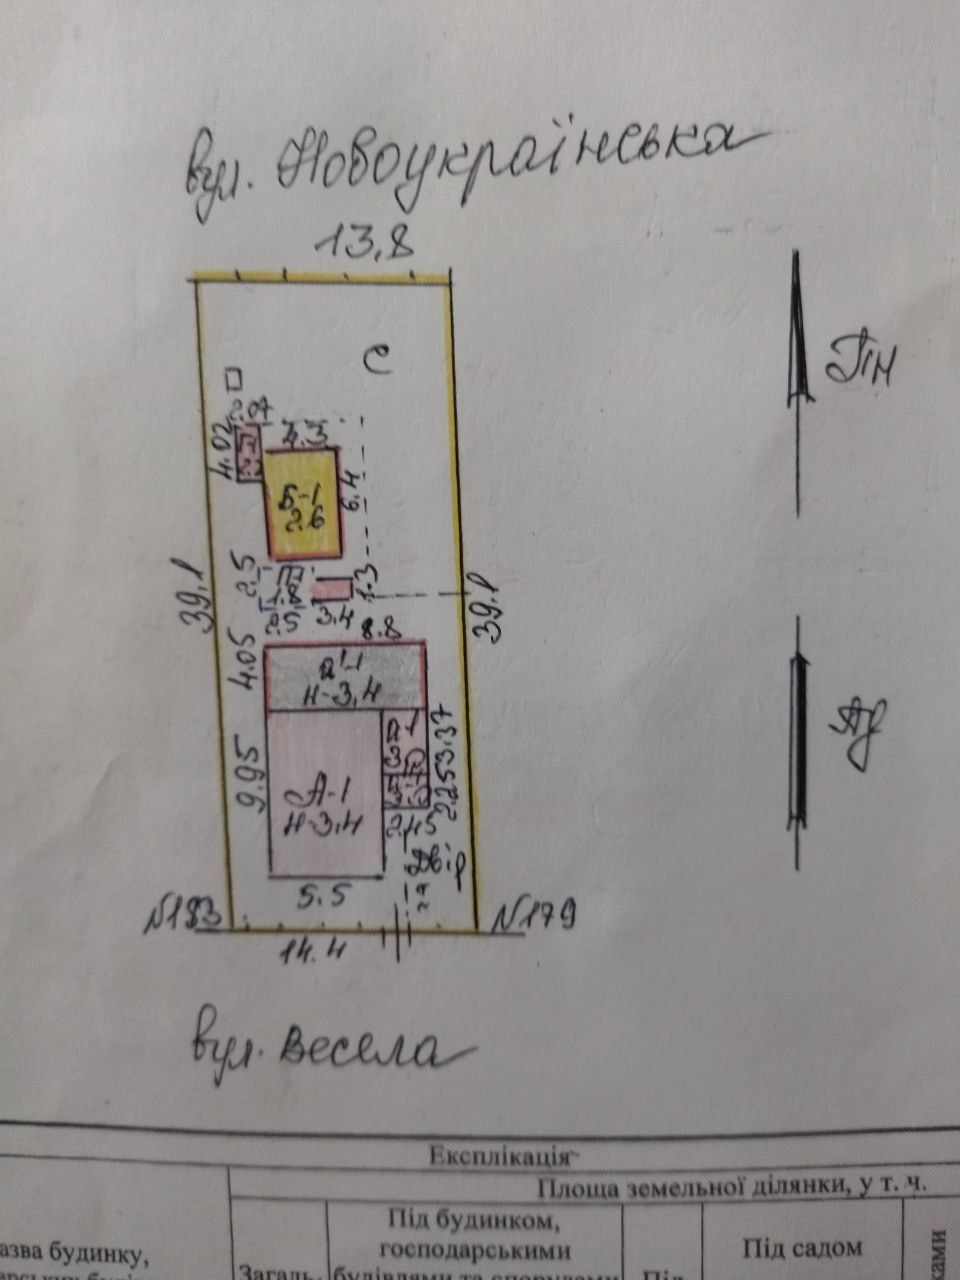 вул. Новоукраїнська
13,8
с
Пн
2.07
4.02
4.3
6.4
Б-1
2.6
2.5
1.3
39,1
39.1
2.5
3.4
8.8
4.05
а'-1
Н-3,4
3.37
9.95
2.25
А-1
Н-3,4
2,45
Двір
5.5
N183
N179
14.4
вул. Весела
Експлікація
Площа земельної ділянки, у т. ч.
азва будинку,
Загаль-
Під будинком,
господарськими
будівлями та спорудами
Під
Під садом